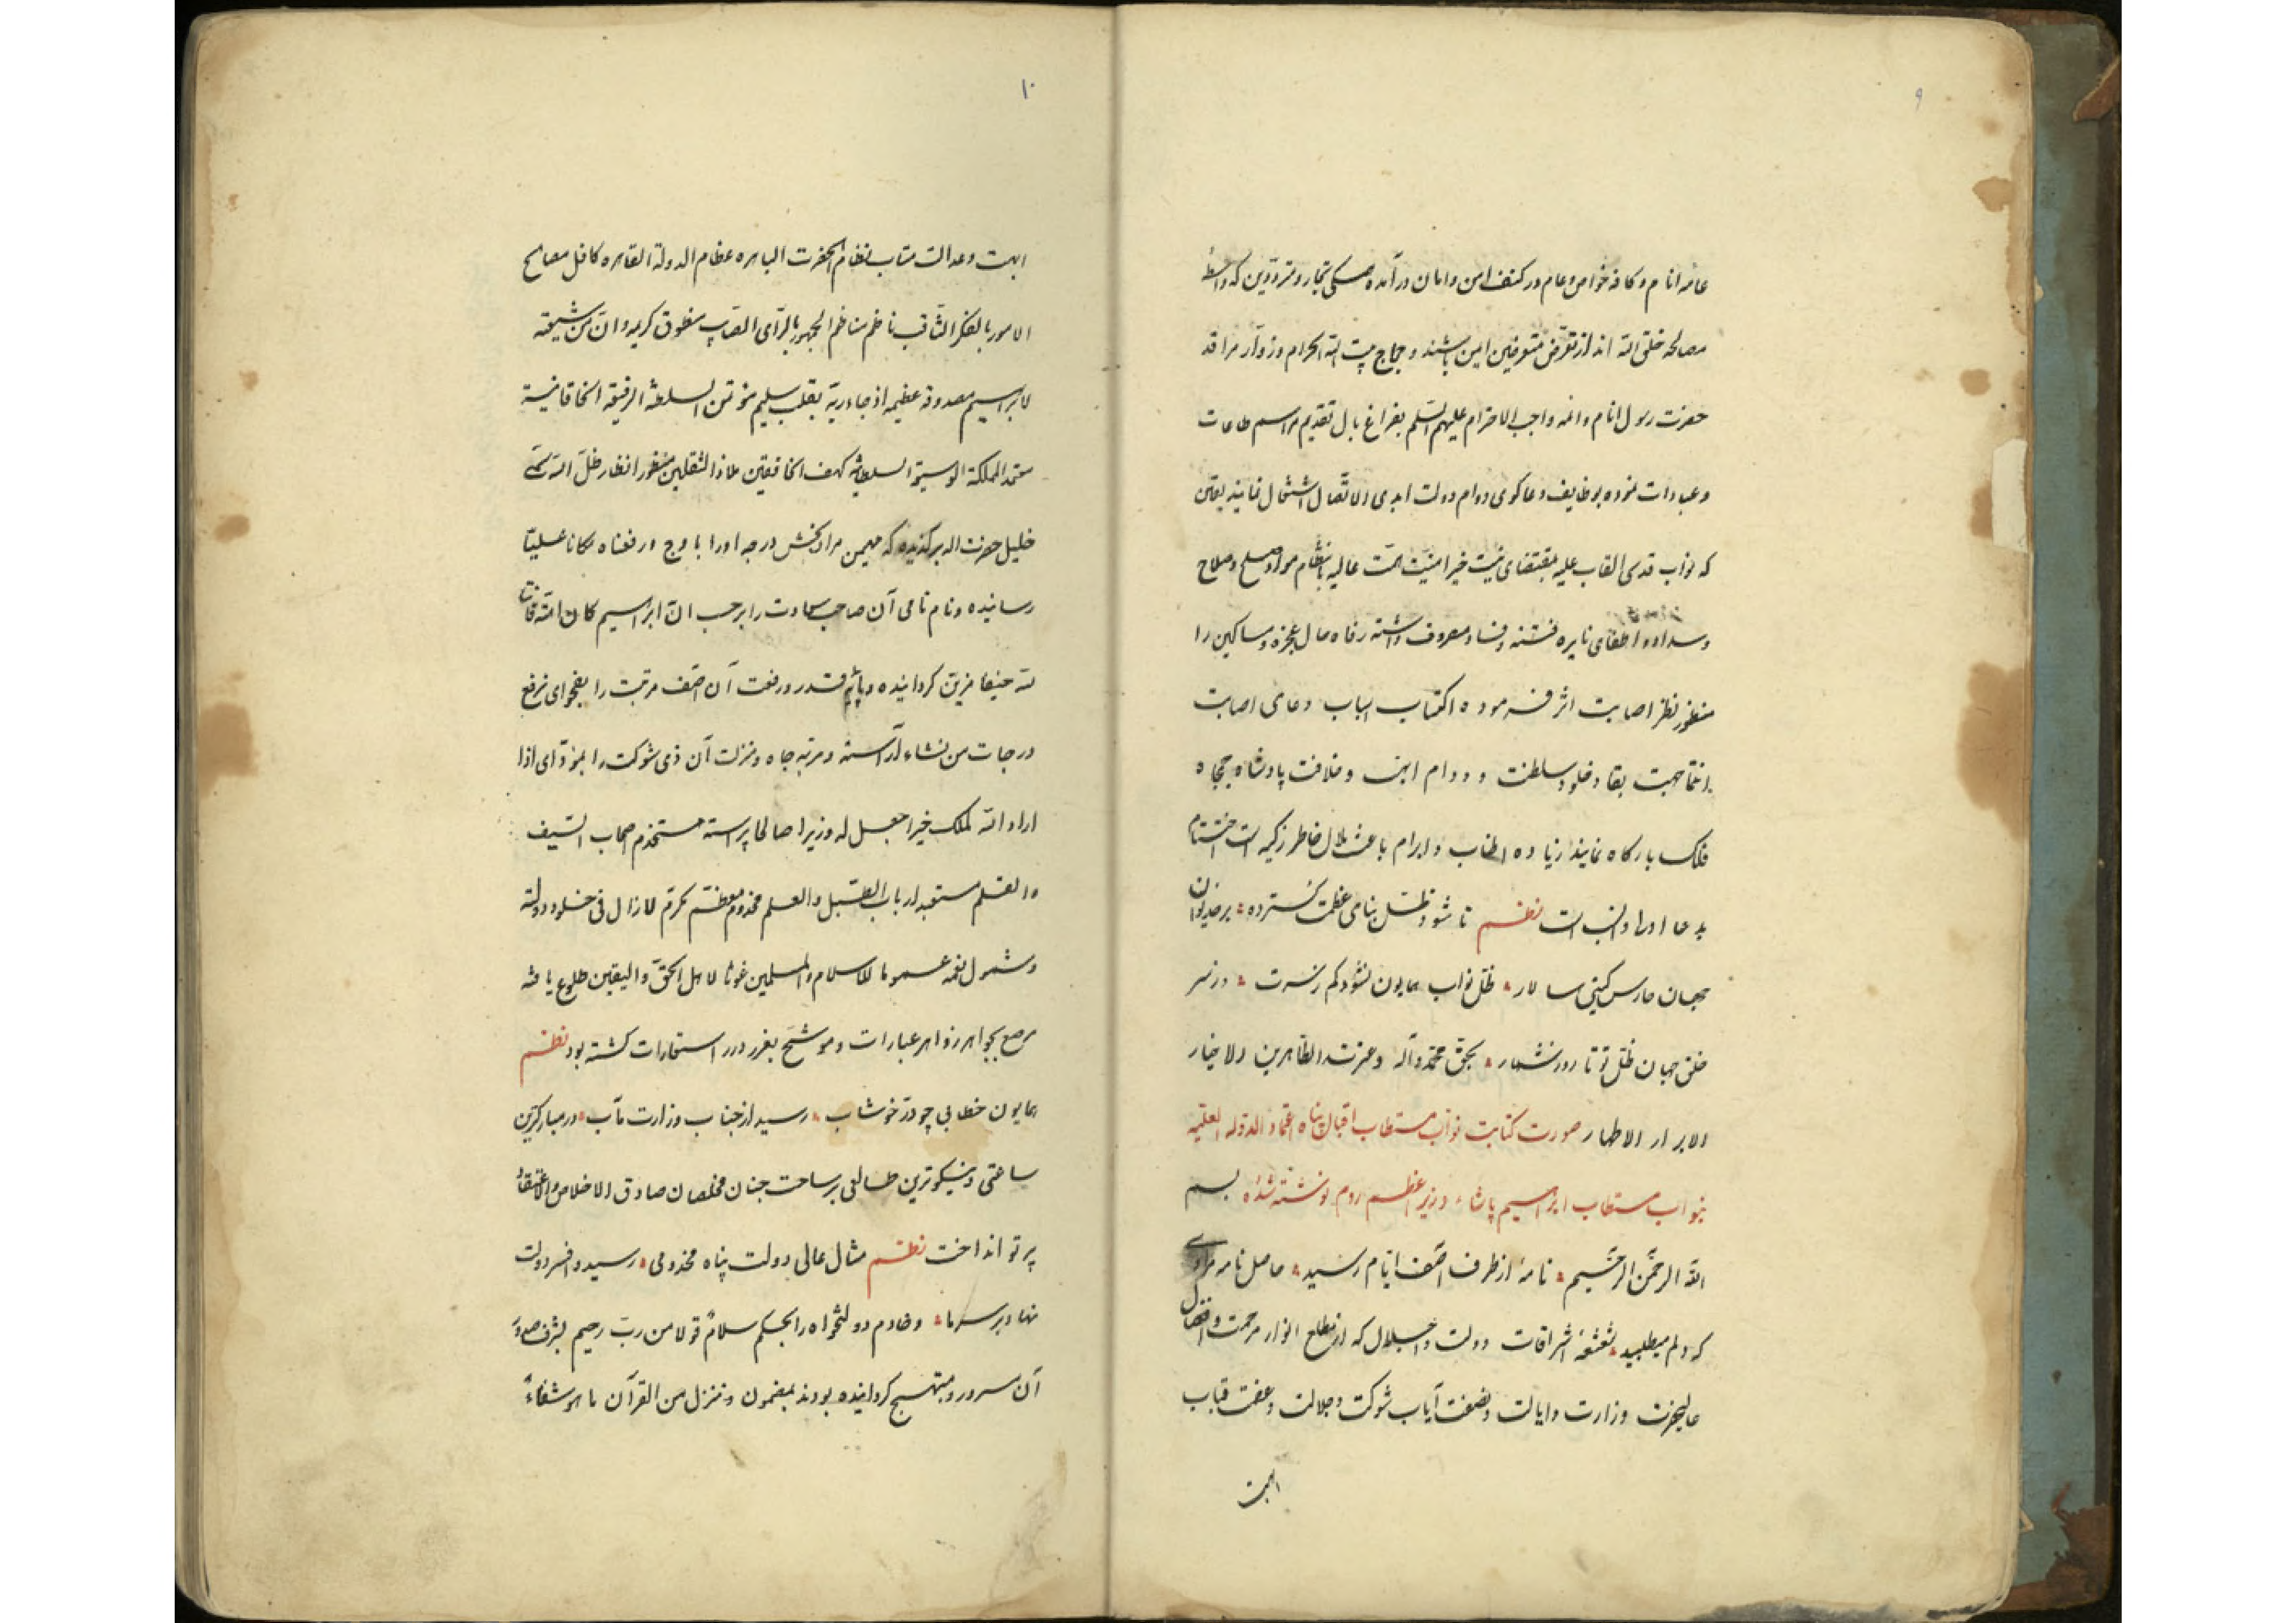 ۹
عامه انام و کافه خواص و عام در کنف امن و امان درآمده همگی تجار و مترددین که واسطهٔ
مصالحه خلق الله اند از تعرض متعرضین ایمن باشند و حجاج بیت الله الحرام و زوار مراقد
حضرت رسول انام و ائمه واجب الاحترام علیهم السلم بفراغ بال تقدیم مراسم طاعات
و عبادات نموده بوظایف دعاکوی دوام دولت ابدی الاتصال اشتغال نمایند یقین
که نواب قدسی القاب علیه بمقتضای نیت خیر امنیت همت عالیه بانتظام مواد صلح و صلاح
و سداد و اطفای نایره فتنه و فساد مصروف داشته رفاه حال عجزه و مساکین را
منظور نظر اصابت اثر فرموده اکتساب اسباب دعای اصابت
انتما جهت بقا و خلود سلطنت و دوام ابهت و خلافت پادشاه جمجاه
فلک بارکاه نمایند زیاده اطناب و ابرام باعث ملال خاطر زکیه است اختتام
بدعا اولی و انسب است نظم تا شود ظل پناهی عظمت کسترده بر خدیوان
جهان حارس کیتی سالار ظل نواب همایون نشود کم ز سرت وز سر
خلق جهان ظل تو تا روز شمار بحق محمد و آله و عترته الطاهرین الاخیار
الابرار الاطهار صورت کتابت نواب مستطاب اقبال پناه اعتماد الدوله العلیه
بنواب مستطاب ابراهیم پاشاء وزیر اعظم روم نوشته شده بسم
الله الرحمن الرحیم نامهٔ از طرف آصف ایام رسید حاصل نامه مرادی
که دلم میطلبید شعشعهٔ اشراقات دولت و اجلال که از مطلع انوار مرحمت و افضال
عالیحضرت وزارت و ایالت و نصفت آیاب شوکت و جلالت و عفت قباب
ابهت
۱۰
ابهت و عدالت متاب نظام الحضرت الباهره عظام الدولة القاهره کافل مصالح
الامور بالفکر الثاقب ناظم مناظم الجمهور بالرأی الصایب منطوق کریمه و ان من شیعته
لابراهیم مصدوقه عظیمه اذ جاء ربه بقلب سلیم مؤتمن السلطنة الرفیعة الخاقانیة
معتمد المملکة الوسیعة السلطانیه کهف الخافقین ملاذ الثقلین منظور انظار ظل الله سمی
خلیل حضرت اله برکزیده که مهیمن مرادبخش درجه او را باوج و رفعناه مکانا علیا
رسانیده و نام نامی آن صاحب سعادت را برحسب ان ابراهیم کان امة قانتا
لله حنیفا مزین کردانیده و پایه قدر و رفعت آن آصف مرتبت را بفحوای نرفع
درجات من نشاء آراسته و مرتبه جاه و منزلت آن ذی شوکت را بمؤدای اذا
اراد الله لملک خیرا جعل له وزیرا صالحا پیراسته مستخدم اصحاب السیف
و القلم مستعبد ارباب الطبل و العلم مخدوم معظم مکرم لازال فی خلود دولته
و شمول نعمه عموما للاسلام و المسلمین غوثا لاهل الحق و الیقین طلوع یافته
مرصع بجواهر زواهر عبارات و موشح بغرر درر استعارات کشته بود نظم
همایون خطابی چو در خوشاب رسید از جناب وزارت مآب در مبارکترین
ساعتی و نیکوترین طالعی بر ساحت جنان مخلصان صادق الاخلاص و الاعتقاد
پرتو انداخت نظم مثال عالی دولت پناه مخدومی رسید و افسر دولت
نهاد بر سر ما و خادم دولتخواه را بحکم سلام قولا من رب رحیم بشرف صدور
آن مسرور و مبتهج کردانیده بودند بمضمون و ننزل من القرآن ما هو شفاء